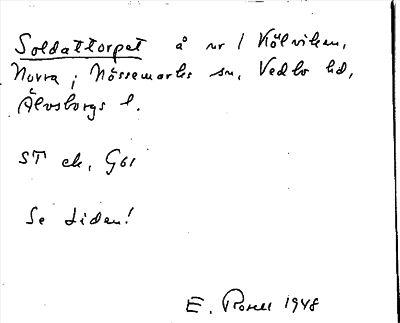 Soldattorpet å nr 1 Kölviken,
Norra, i Nössemarks sn, Vedbo hd,
Älvsborgs l.
ST ek, G61
Se sidan!
E. Rosell 1948